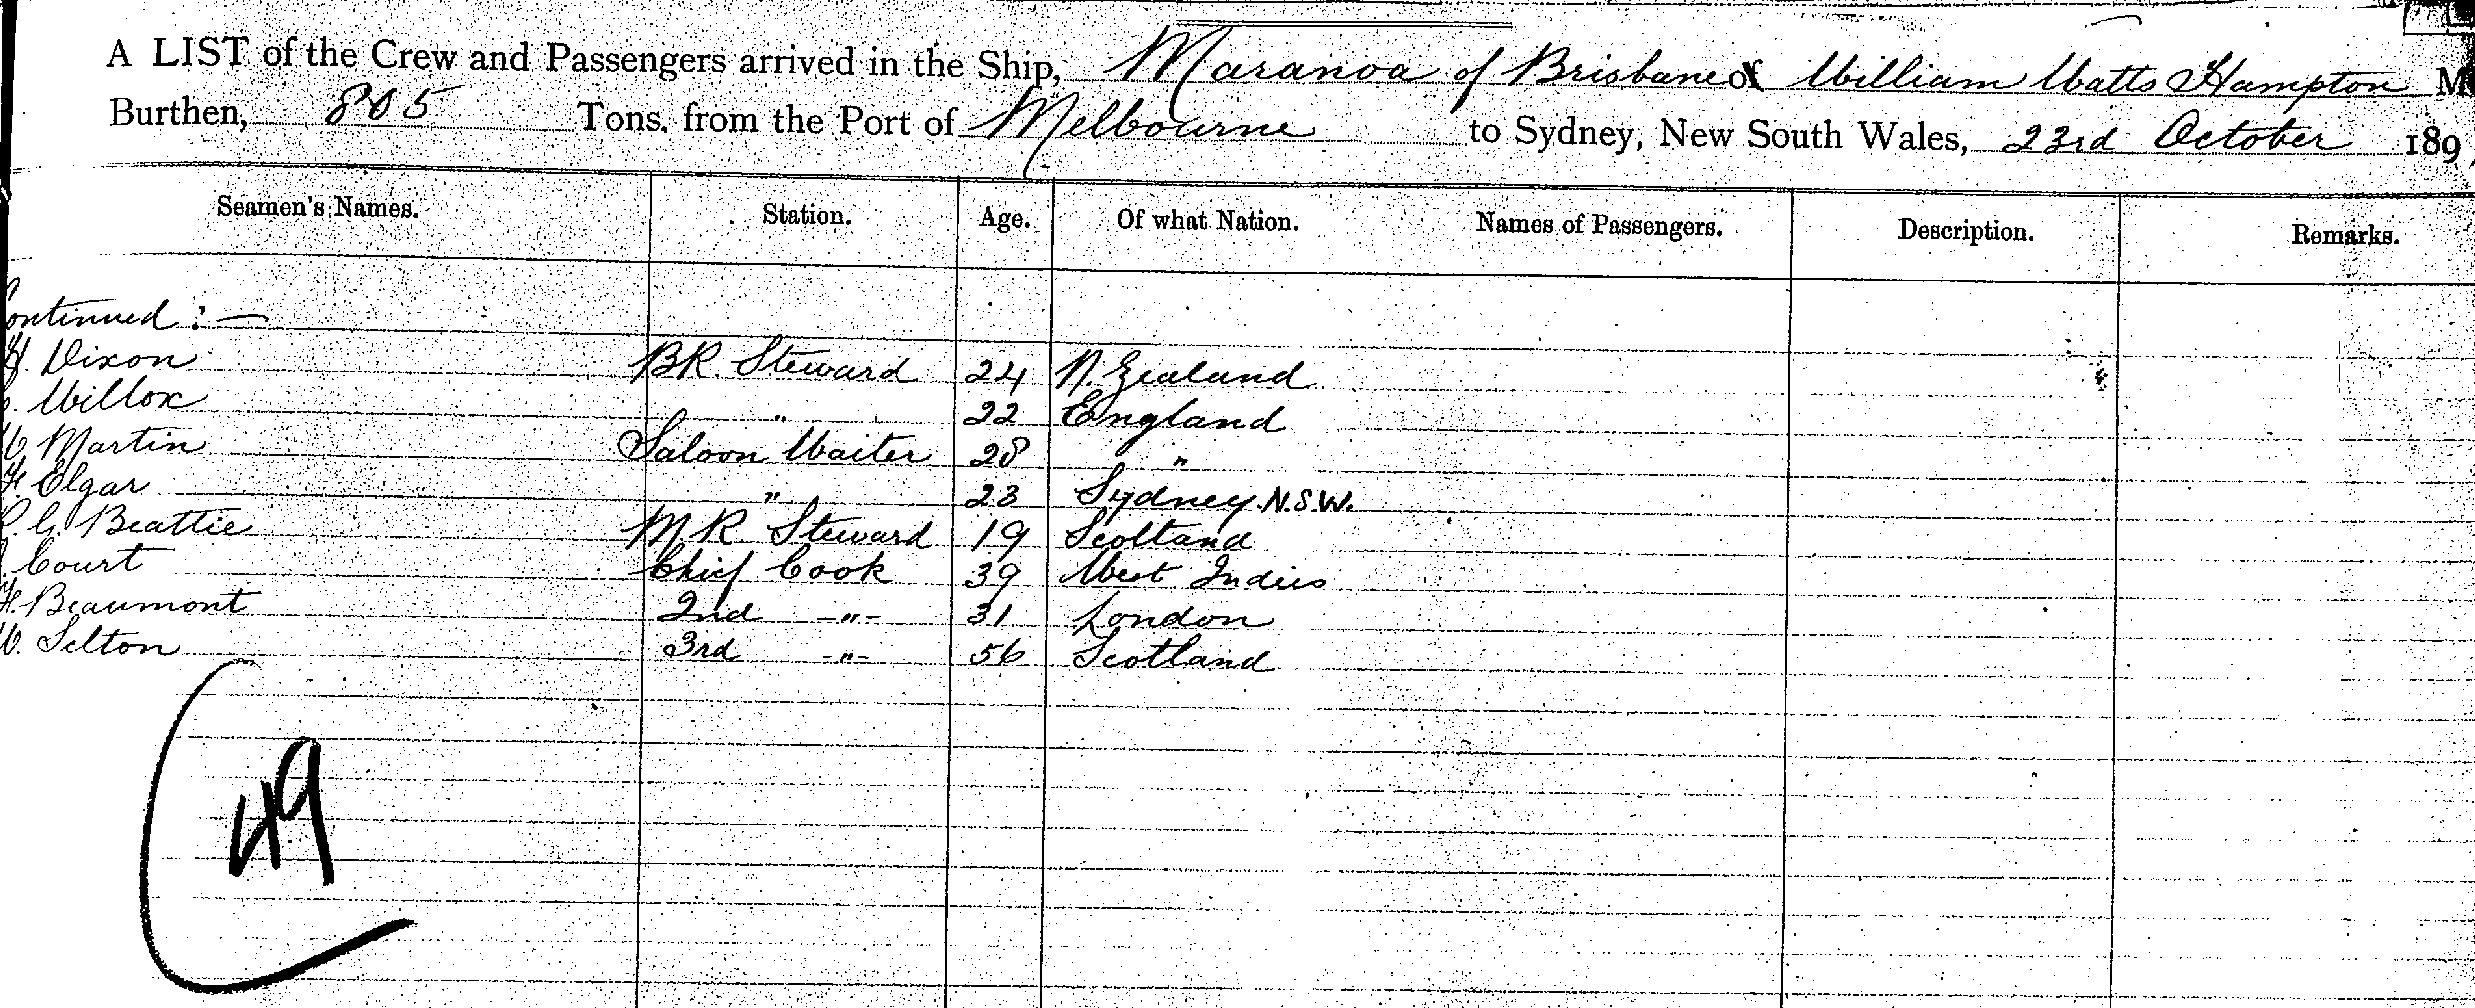 A LIST of the Crew and Passengers arrived in the Ship, Maranoa of Brisbane of William Watts Hampton M
Burthen, 805 Tons. from the Port of Melbourne to Sydney, New South Wales, 23rd October 189
Seamen's Names. Station. Age. Of what Nation. Names of Passengers. Description. Remarks.
ontinued : —
H. Dixon BR. Steward 24 N. Zealand
Willox " 22 England
W Martin Saloon Waiter 28 "
H Elgar " 23 Sydney N.S.W.
G. Beattie M R Steward 19 Scotland
Court Chief Cook 39 West Indies
H. Beaumont 2nd -"- 31 London
W. Selton 3rd -"- 56 Scotland
49